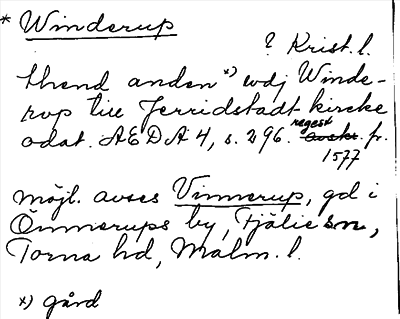 * Winderup
? Krist. l.
thend anden *) wdj Winde-
rup till Jerridstadt kircke
odat. AEDA 4, s. 296. regest fr.
1577
möjl. avses Vinnerup, gd i
Önnerups by, Fjälie sn,
Torna hd, Malm. l.
*) gård